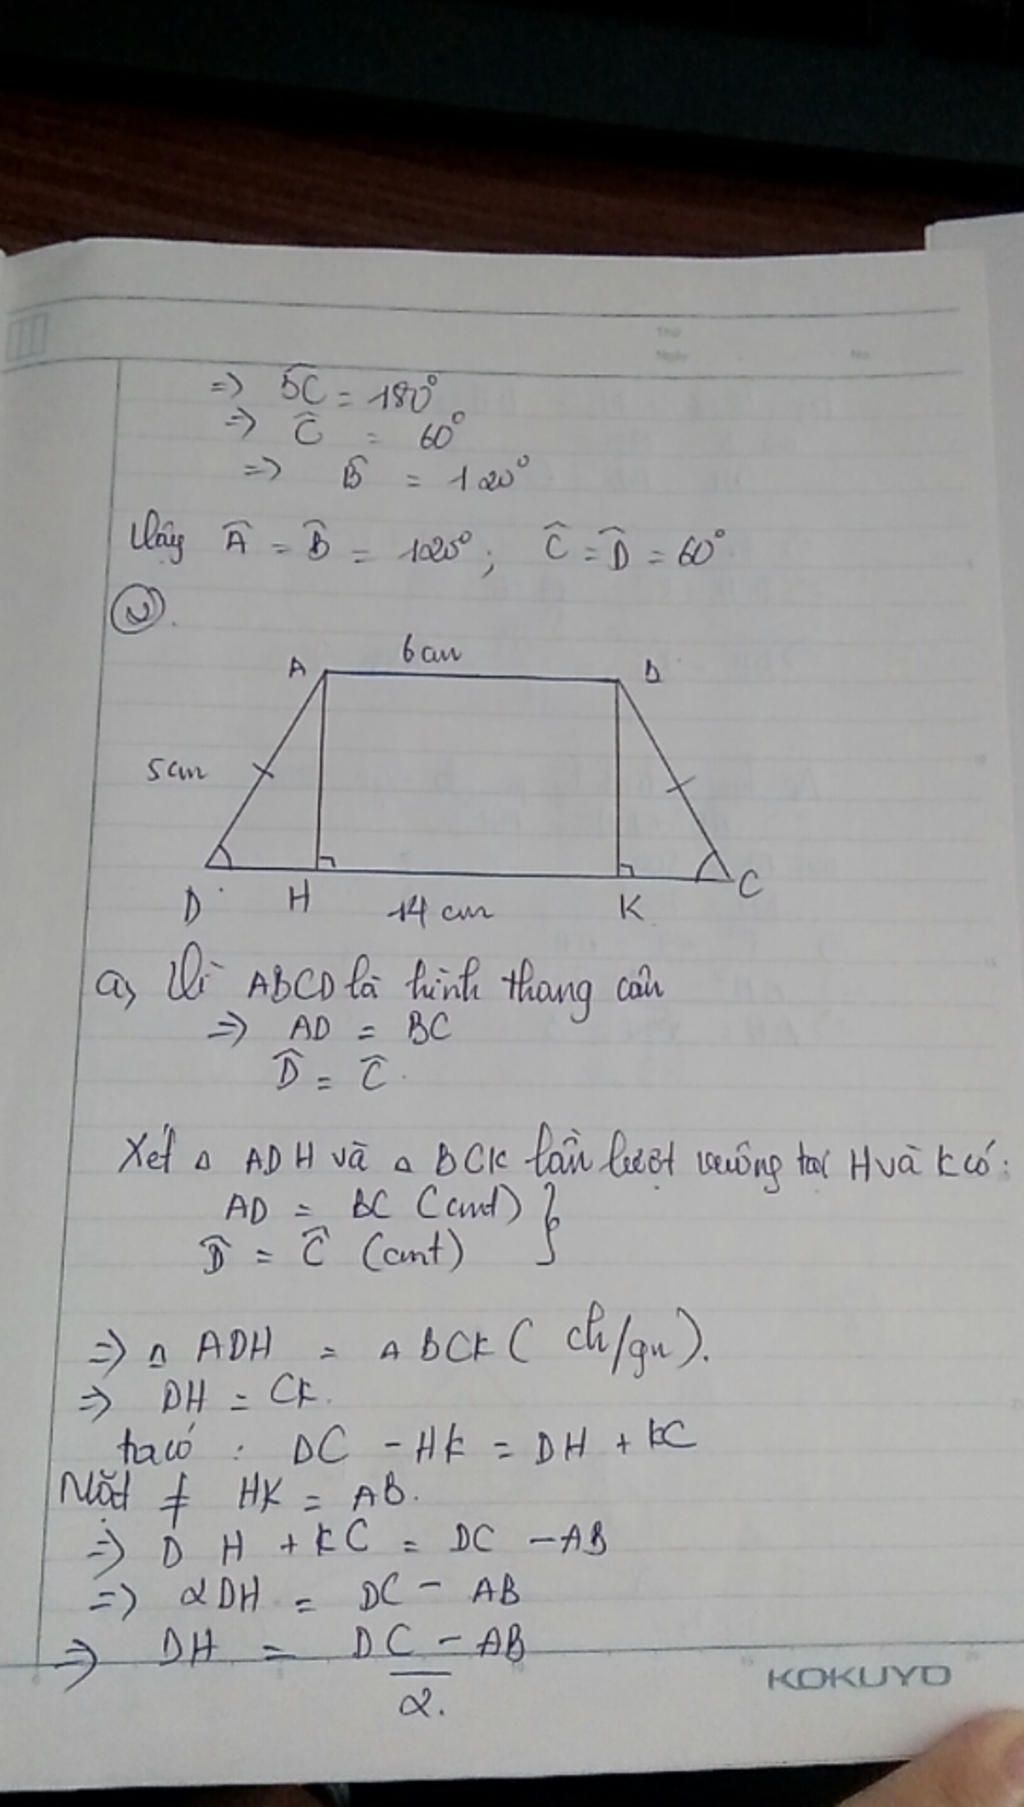 Thứ
Ngày No.
=> 5Ĉ = 180°
=> Ĉ = 60°
=> B̂ = 120°
Vậy Â = B̂ = 120°; Ĉ = D̂ = 60°
②.
A 6cm B
5cm
D H 14 cm K C
a, Vì ABCD là hình thang cân
=> AD = BC
D̂ = Ĉ.
Xét Δ ADH và Δ BCK lần lượt vuông tại H và K có:
AD = BC (cmt) }
D̂ = Ĉ (cmt)
=> Δ ADH = Δ BCK ( ch/gn).
=> DH = CK.
ta có : DC - HK = DH + KC
Mặt ≠ HK = AB.
=> D H + KC = DC - AB
=> 2DH = DC - AB
=> DH = DC - AB
2.
KOKUYO